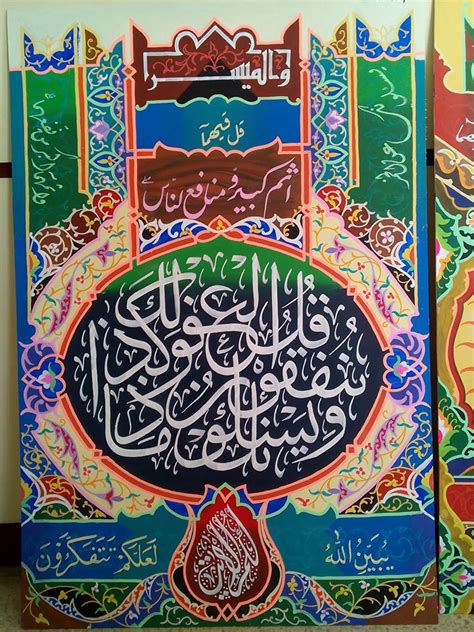 والميسر
قل فيهما
اثم كبير ومنافع للناس
ويسئلونك ماذا ينفقون قل العفو كذلك
يبين الله
لكم الايت
لعلكم تتفكرون